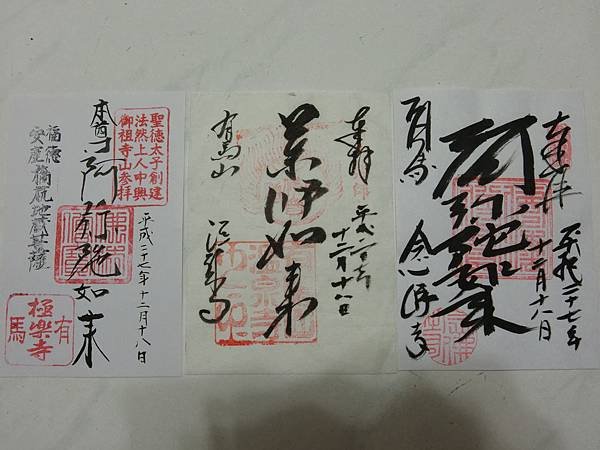 奉拝
平成二十七年
十二月十八日
阿弥陀如来
有馬 念仏寺
奉拝
平成二十七年
十二月十八日
薬師如来
有馬山 温泉寺
聖徳太子創建
法然上人中興
御祖寺山参拝
平成二十七年十二月十八日
本尊 阿弥陀如来
福徳
安産
地蔵菩薩
有馬
極楽寺